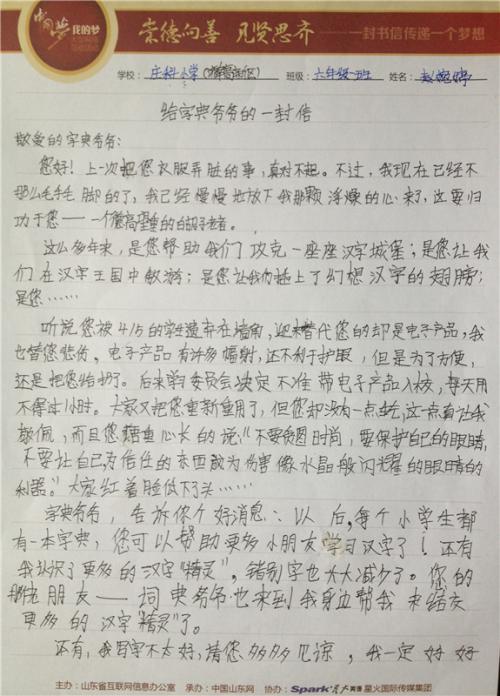 中国梦 我的梦 崇德向善 见贤思齐 一封书信传递一个梦想
学校：庄科小学 班级：六年级一班 姓名：赵婉婷
给字典爷爷的一封信
敬爱的字典爷爷：
您好！上一次把您衣服弄脏的事，真对不起。不过，我现在已经不
那么毛手毛脚的了，我已经慢慢地放下我那颗浮燥的心来了，这要归
功于您——一个德高望重的白胡子老者。
这么多年来，是您帮助我们攻克一座座汉字城堡；是您让我
们在汉字王国中敏游；是您让我们插上了幻想汉字的翅膀；
是您……
听说您被4/5的学生遗弃在墙角，迎来替代您的却是电子产品，我
也替您悲伤。电子产品有许多辐射，还不利于护眼，但是为了方便，
还是把您给扔了。后来 委员会决定不准带电子产品入校，每天用
不得过1小时。大家又把您重新重用了，但您却没有一点生气，这一点着让我
敬佩，而且您语重心长的说：“不要贪图时尚，要保护自己的眼睛，
不要让自己为信任的东西成为伤害像水晶般闪光耀的眼睛的
利器。”大家红着脸低下了头……
字典爷爷，告诉你个好消息：以后，每个小学生都
有一本字典，您可以帮助更多小朋友学习汉字了！还有
我认识了更多的“汉字精灵”，错别字也大大减少了。您的
朋友——词典爷爷也来到我身边帮我来结交
更多的汉字“精灵”了。
还有，我写字不太好，请您多多见谅，我一定好好
主办：山东省互联网信息办公室 承办：中国山东网 协办：Spark 星火英语 星火国际传媒集团